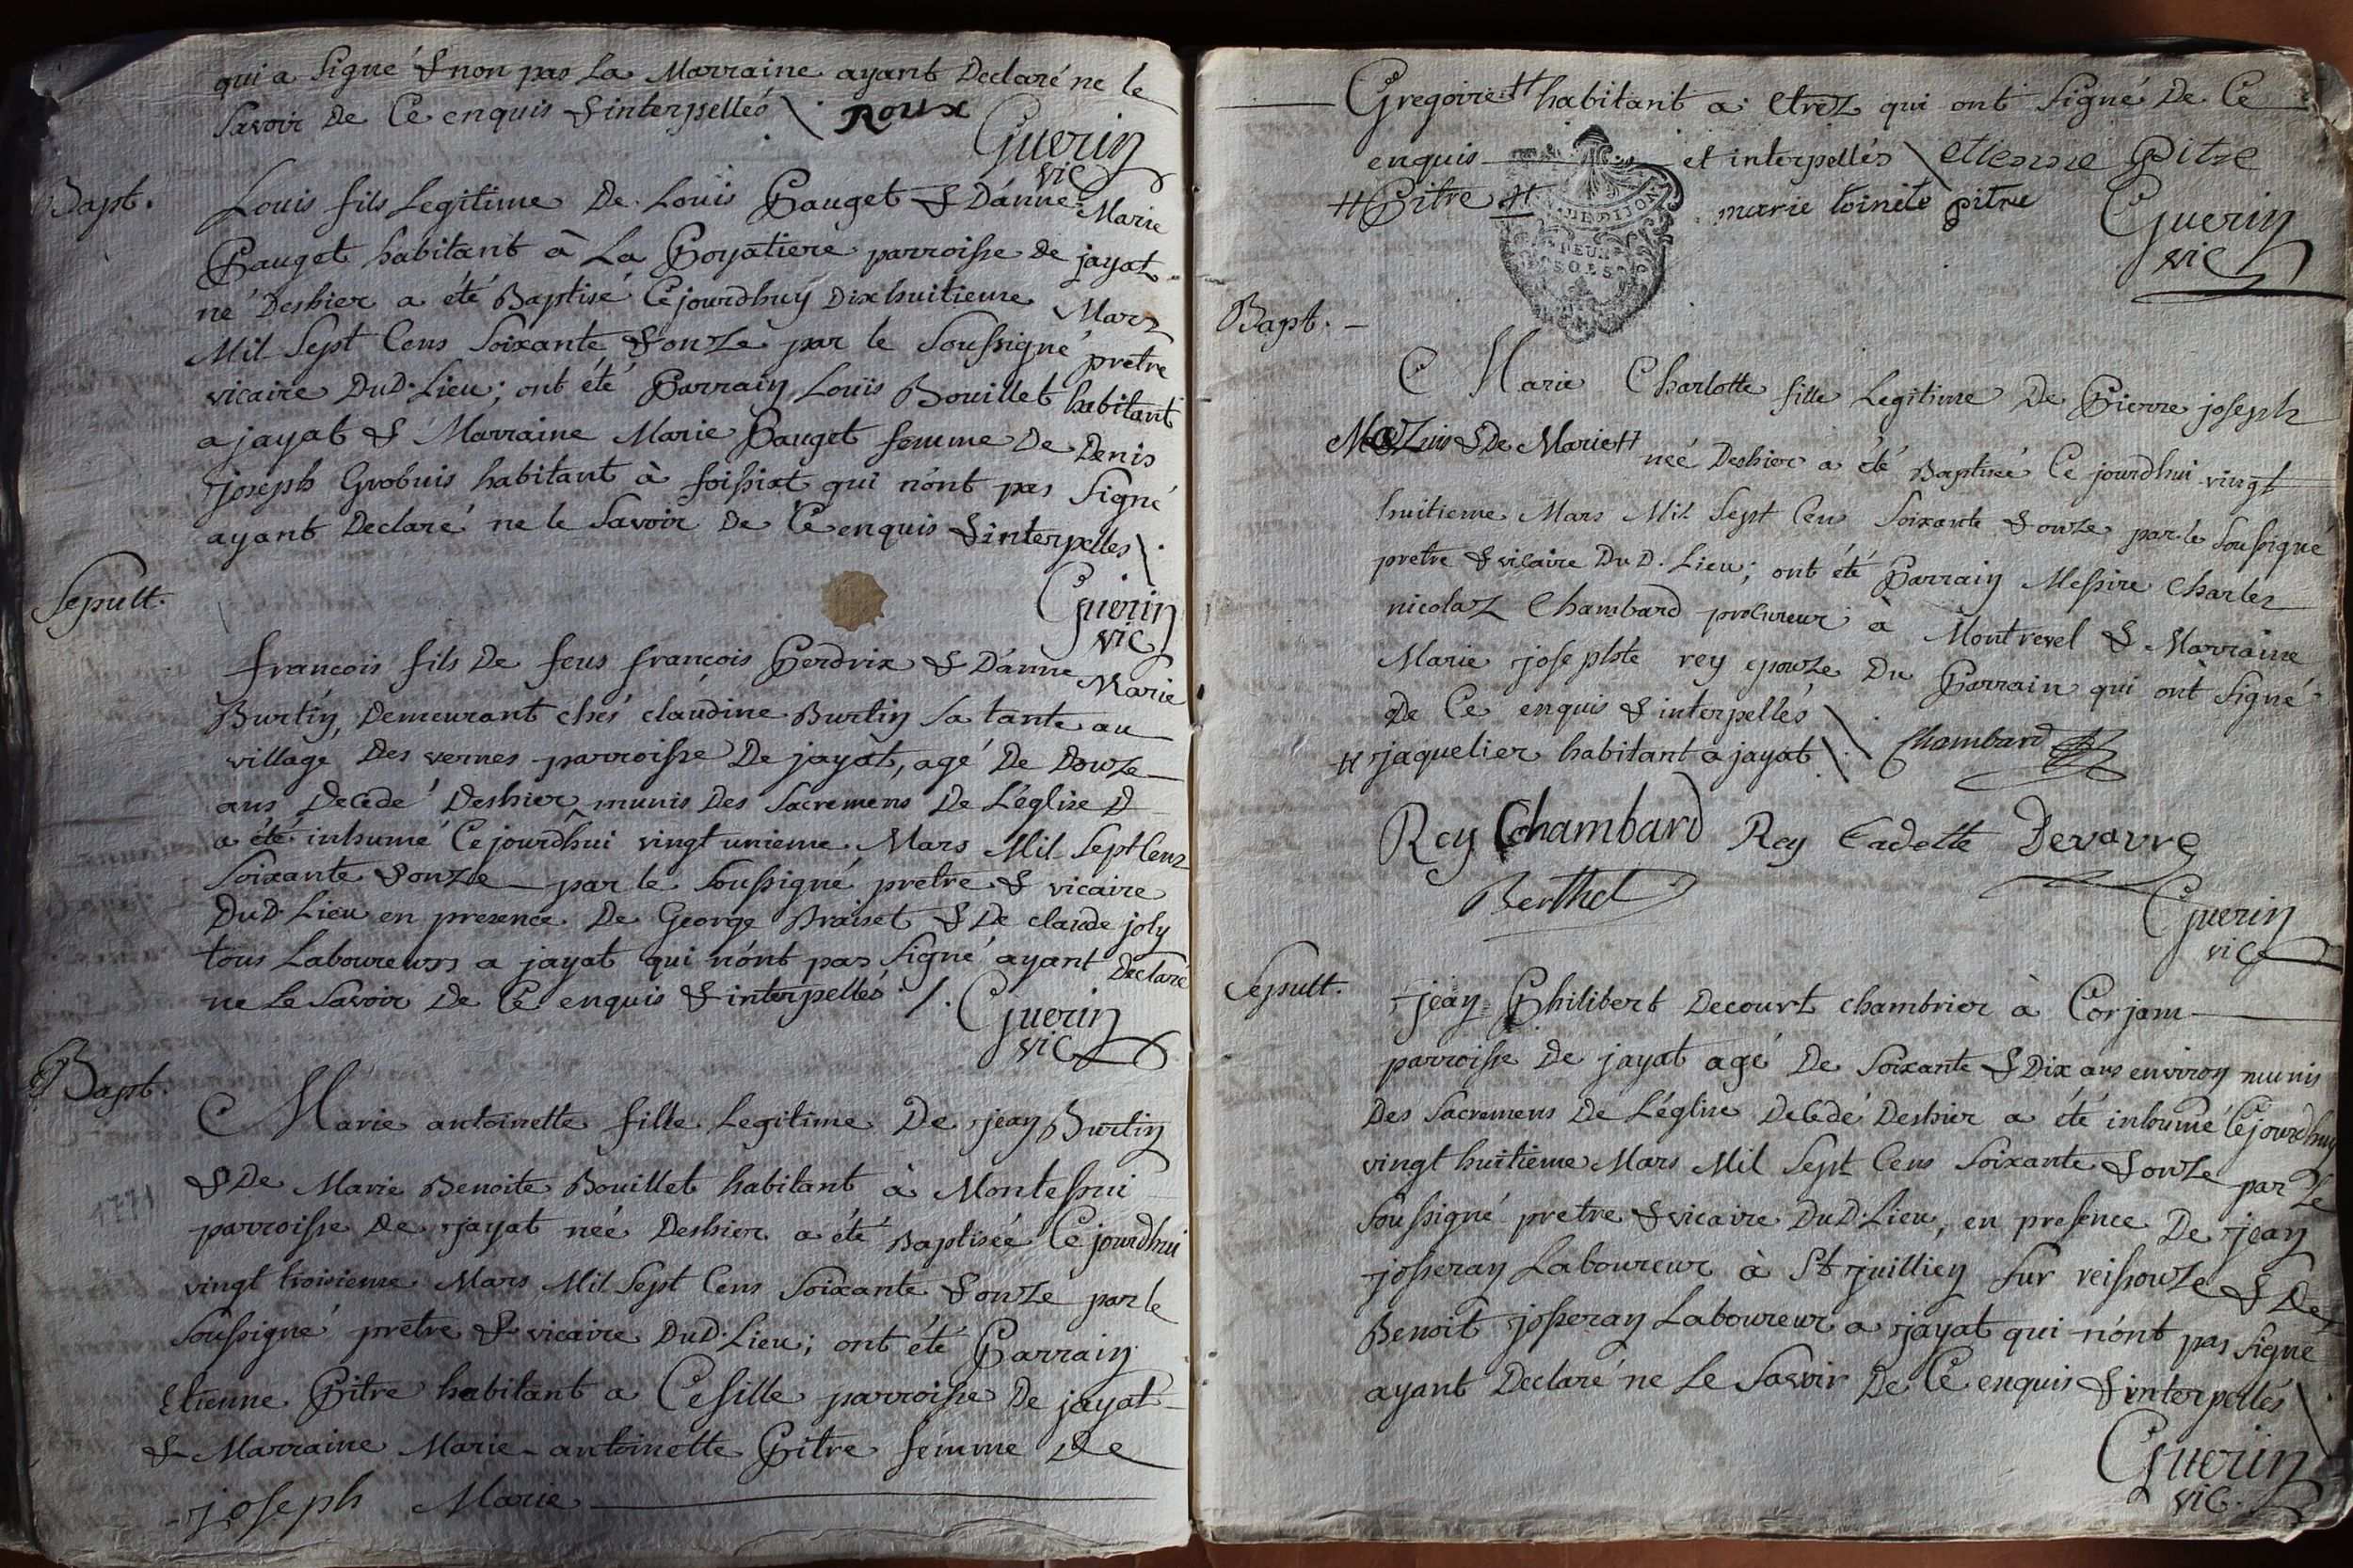 qui a signé & non pas la Marraine ayant Declaré ne le
savoir de Ce enquis & interpellés \. Roux
Guerin
vic
Bapt.
Louis fils Legitime De Louis Pauget & D'anne Marie
Pauget habitant à La Poyatiere parroisse de jayat
né Deshier a été Baptisé Cejourdhuy Dixhuitieme Mars
Mil Sept Cens Soixante & onze par le Soussigné prêtre
vicaire DuD. Lieu; ont été Parrain Louis Bouillet habitant
a jayat & Marraine Marie Pauget femme De Denis
joseph Grobuis habitant à foissiat qui n'ont pas Signé
ayant Declaré ne le Savoir De Ce enquis & interpelles \.
Guerin
vic
Sepult.
francois fils De feus françois Perdrix & D'anne Marie
Burtin, Demeurant chés claudine Burtin Sa tante au
village Des vernes parroisse De jayat, agé De Douze
ans Decedé Deshier munis Des Sacremens De L'église
a été inhumé Cejourdhui vingt unieme Mars Mil Sept Cens
Soixante & onze par le Soussigné pretre & vicaire
DuD. Lieu en presence De George Braiset & De claude joly
tous Laboureurs a jayat qui n'ont pas Signé ayant Declaré
ne Le Savoir De Ce enquis & interpellés /.
Guerin
vic
Bapt.
Marie antoinette fille Legitime De jean Burtin
& De Marie Benoite Bouillet habitant à Montespui
parroisse De jayat née Deshier a été Baptisée Cejourdhui
vingt troisieme Mars Mil Sept Cens Soixante & onze par le
Soussigné prêtre & vicaire DuD. Lieu; ont été Parrain
Etienne Pitre habitant a Cesille parroisse De jayat
& Marraine Marie antoinette Pitre femme De
joseph Marie
Gregoire # habitant a etrez qui ont Signé De Ce
enquis et interpellés \ etienne pitre
# Pitre # marie toinete pitre
Guerin
vic
DE DIJON
DEUX
SOLS
Bapt.
Marie Charlotte fille Legitime De Pierre joseph
Mazuis & De Marie # née Deshier a été Baptisée Cejourdhui vingt
huitieme Mars Mil Sept Cen Soixante & onze par le Soussigné
pretre & vicaire DuD. Lieu; ont été Parrain Messire Charles
nicolaz Chambard procureur à Montrevel & Marraine
Marie josephte rey epouze Du Parrain qui ont Signé
De Ce enquis & interpellés \.
# jaquelier habitant a jayat \. Chambard
Rey Chambard Rey Cadette Devavre
Berthet
Guerin
vic
Sepult.
jean Philibert Decourt chambrier à Corjam
parroisse De jayat agé De Soixante & Dix ans environ munis
Des Sacremens De L'église Decedé Deshier a été inhumé Cejourdhuy
vingt huitieme Mars Mil Sept Cens Soixante & onze par Le
Soussigné pretre & vicaire DuD. Lieu, en presence De jean
josseran Laboureur à St juillien Sur reissouze & De
Benoit josseran Laboureur a jayat qui n'ont pas Signé
ayant Declaré ne Le Savoir De Ce enquis & interpellés \.
Guerin
vic.